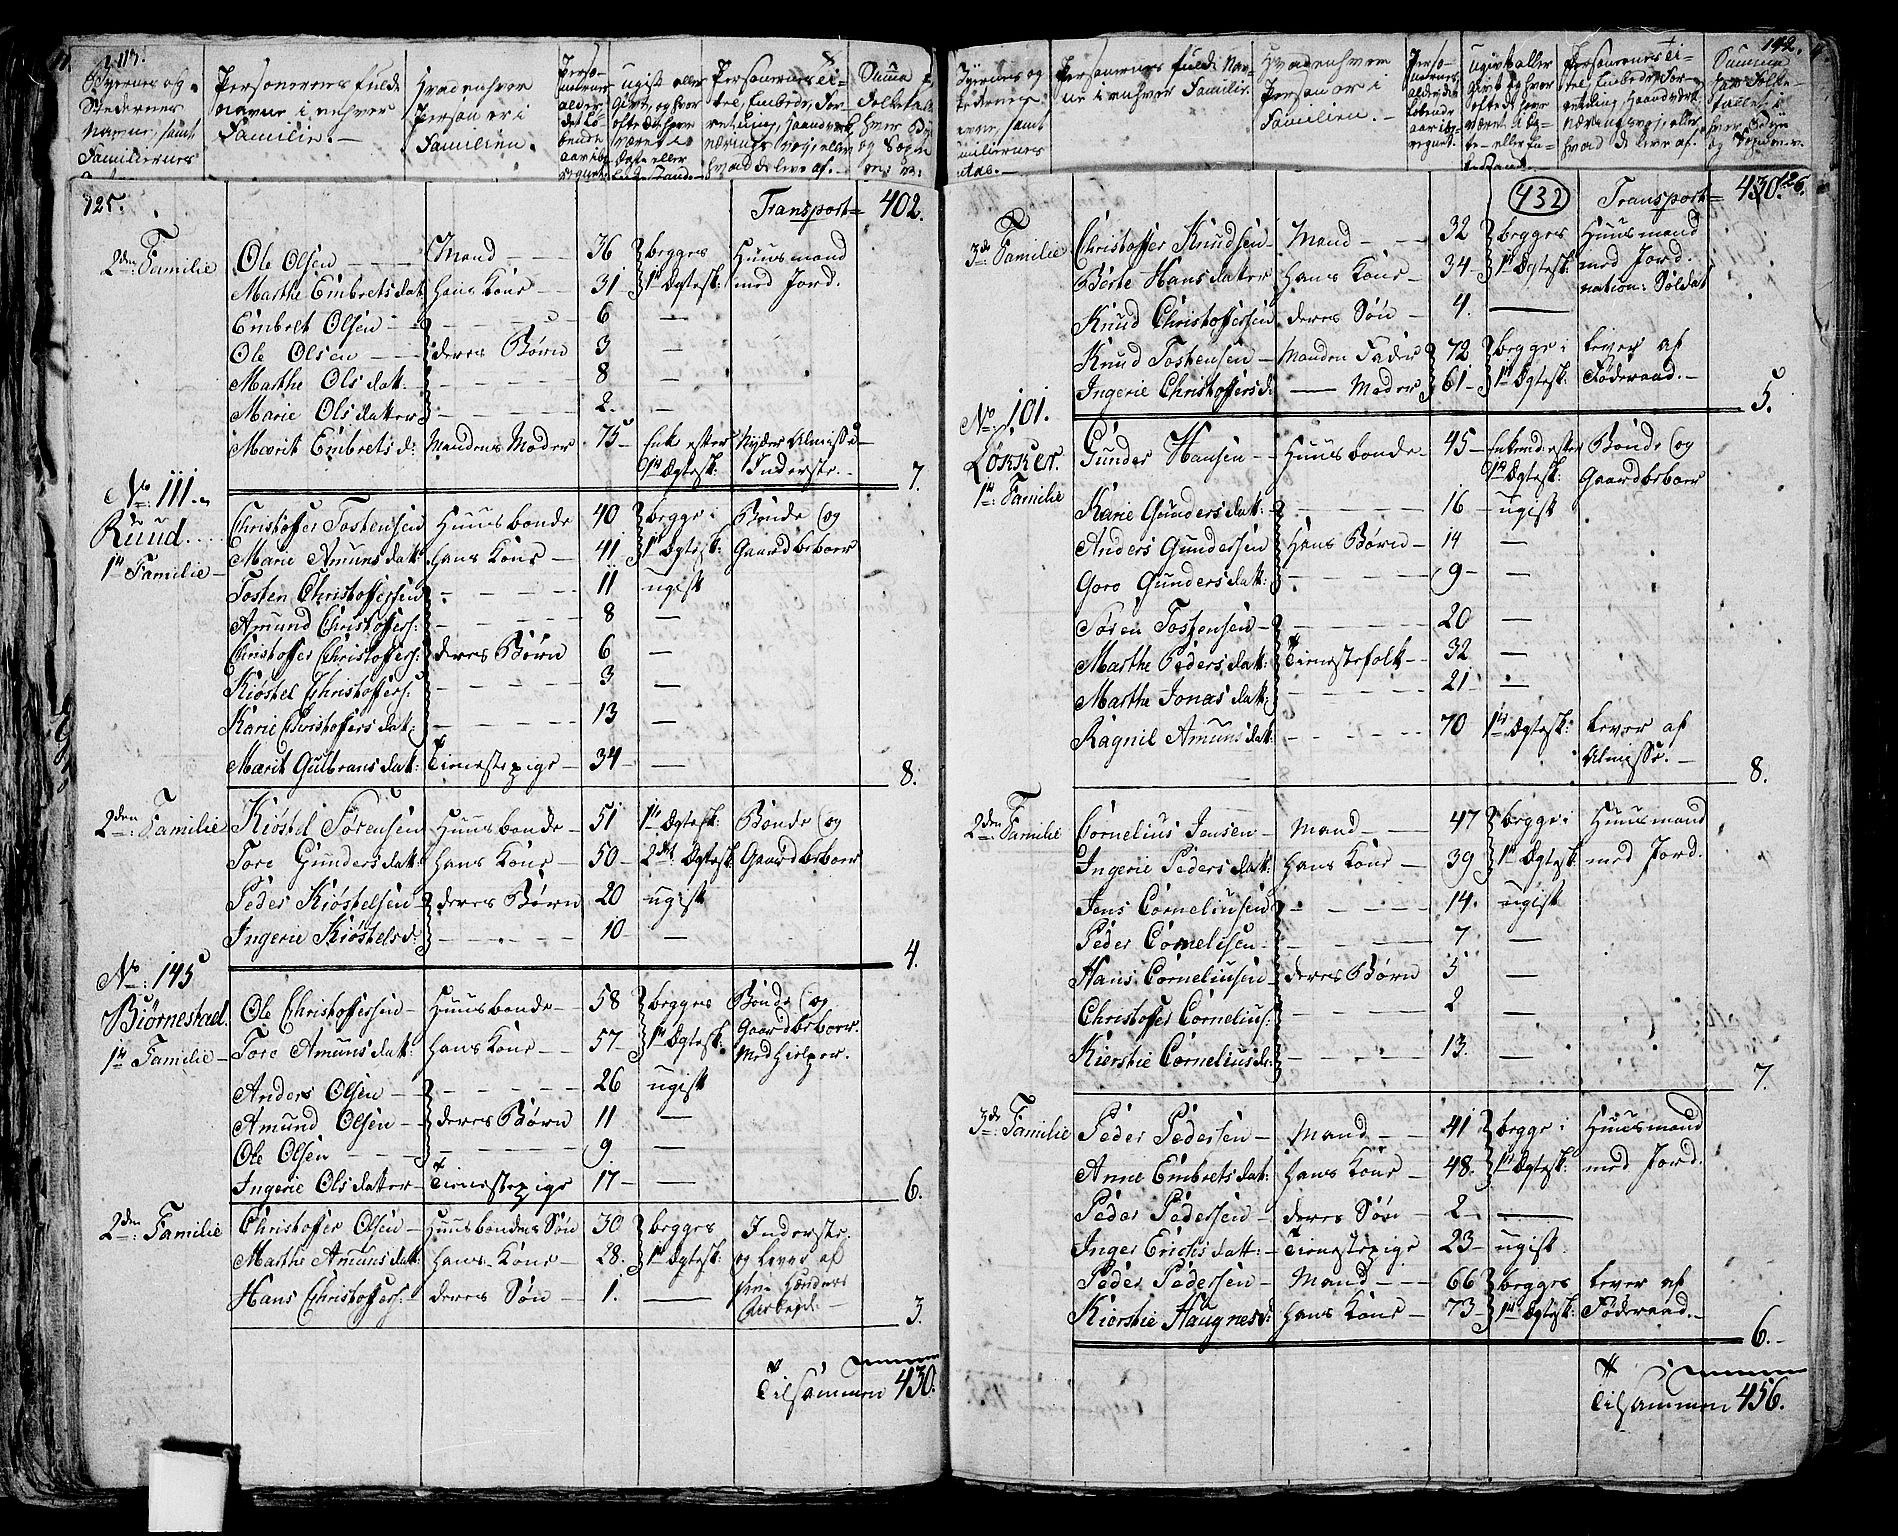 Byernes og
Stedernes
Navne, samt
Familiernes
Personernes fulde
Navne i enhver
Familie.
Hvad enhver
Person er i
Familien.
Perso-
nernes
alder
det lø-
bende
aar ibe-
regnet.
ugift eller
gift, og hvor
ofte de have
været i
Ægte eller
Enkestand.
Personernes Ti-
tel, Embede, For-
retning, Haandverk
Næringsvej, eller
hvad de leve af.
Summa
Folketal
hver By
og Sogn
125.
Transport= 402.
2den Familie Ole Olsen Mand 36 begges Huusmand
Marthe Embretsdat: hans Kone 31 1te Ægtesk: med Jord.
Embret Olsen 6 —
Ole Olsen deres Børn 3 —
Marthe Olsdat: 8 —
Marie Olsdater 2. —
Marit Embretsd: Mandens Moder 75 Enke efter Nyder Almisse
1te Ægtesk: Inderste. 7.
No. 111.
Ruud
1te Familie
Christoffer Tostensen Huusbonde 40 begge i Bonde og
Marie Amunsdat: hans Kone 41 1te Ægtesk: Gaardbeboer
Tosten Christoffersen 11 ugift
Amund Christoffers: 8 —
Christoffer Christoffers: deres Børn 6 —
Kiøstel Christoffers: 3 —
Karie Christoffersdat: 13 —
Marit Gulbransdat: Tienestepige 34 — 8.
2den Familie Kiøstel Sørensen Huusbonde 51 1te Ægtesk: Bonde og
Tore Gundersdat: hans Kone 50 2det Ægtesk: Gaardbeboer
Peder Kiøstelsen deres Børn 20 ugift
Ingerie Kiøstelsd: 10 — 4.
No. 145
Biørnestad.
1te Familie
Ole Christoffersen Huusbonde 58 begges Bonde og
Tore Amunsdat: hans Kone 57 1te Ægtesk: Gaardbeboer
Medhielper.
Anders Olsen 26 ugift
Amund Olsen deres Børn 11 —
Ole Olsen 9. —
Ingerie Olsdater Tienestepige 17 — 6.
2den Familie Christoffer Olsen Huusbondens Søn 30 begges Inderste
Marthe Amunsdat: hans Kone 28. 1te Ægtesk: og lever af
Hans Christoffers: deres Søn 1. — sine Hænders
Arbejde. 3.
Tilsammen 430.
142.
Byernes og
Stedernes
Navne, samt
Familiernes
Antal.
Personernes fulde Nav-
ne i enhver Familie.
Hvad enhver
Person er i
Familien.
Perso-
nernes
alder det
løbende
aar ibe-
regnet.
ugift eller
gift og hvor
ofte de have
været i Æg-
te- eller En-
kestand.
Personernes Ti-
tel, Embede, For-
retning, Haandverk
Næringsvej, eller
hvad de leve af.
Summa
paa Folke-
tallet i
hver By
og Sogn
432 Transport= 430. 126.
3de Familie Christoffer Knudsen Mand 32 begges Huusmand
Berte Hansdater hans Kone 34 1te Ægtesk: med Jord.
nation: Soldat
Knud Christoffersen deres Søn 4. —
Knud Tostensen Manden Fader 72 begge i lever af
Ingerie Christoffersd: — Moder 61 1te Ægtesk: Føderaad. 5.
No. 101.
Løkker.
1te Familie
Gunder Hansen Huusbonde 45 Enkemd: efter Bonde og
1te Ægtesk: Gaardbeboer
Karie Gundersdat: 16 ugift
Anders Gundersen hans Børn 14 —
Goro Gundersdat: 9 —
Søren Tostensen 20 —
Marthe Pedersdat: Tienestefolk 32 —
Marthe Jonasdat: 21 —
Ragnil Amunsdat: 70 1te Ægtesk: lever af
Almisse. 8.
2den Familie Cornelius Jensen Mand 47 begge i Huusmand
Ingerie Pedersdat: hans Kone 39 1te Ægtesk: med Jord.
Jens Corneliusen 14. ugift
Peder Cornelisen 7 —
Hans Corneliusen deres Børn 5 —
Christoffer Cornelius: 2 —
Kierstie Corneliusd: 13. — 7.
3de Familie Peder Pedersen Mand 41 begge i Huusmand
Anne Embretsdat: hans Kone 48. 1te Ægtesk: med Jord.
Peder Pedersen deres Søn 2 —
Inger Erichsdatt: Tienestepige 23 ugift
Peder Pedersen Mand 66 begges lever af
Kierstie Haagnesd: hans Kone 73 1te Ægtesk: Føderaad. 6.
Tilsammen 456.